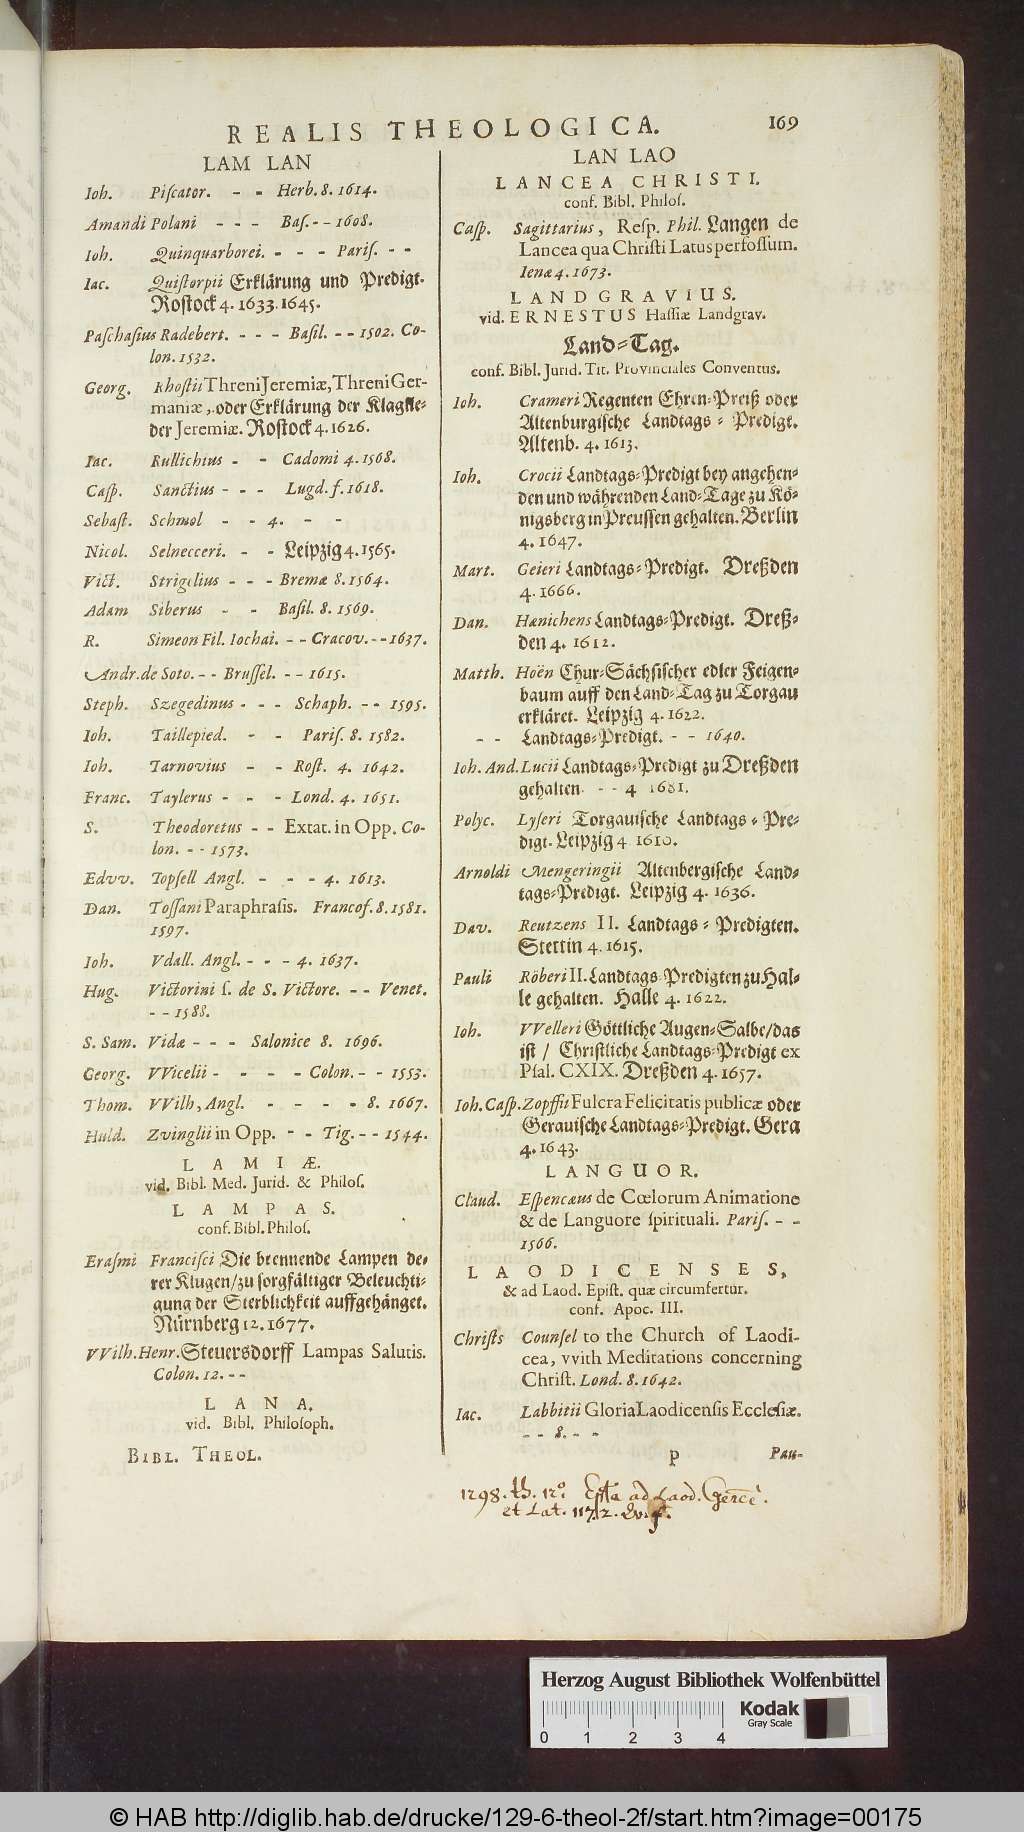 REALIS THEOLOGICA. 169
LAM LAN
Ioh. Piſcator. - - Herb. 8. 1614.
Amandi Polani - - - Baſ. - - 1608.
Ioh. Quinquarborei. - - - Pariſ. - -
Iac. Quiſtorpii Erklärung und Predigt.
Roſtock 4. 1633. 1645.
Paſchaſius Radebert. - - - Baſil. - - 1502. Co-
lon. 1532.
Georg. Rhoſtii Threni Jeremiæ, Threni Ger-
maniæ, oder Erklärung der Klaglie-
der Jeremiæ. Roſtock 4. 1626.
Iac. Rullichius - - Cadomi 4. 1508.
Caſp. Sanctius - - - Lugd. f. 1618.
Sebaſt. Schmol - - 4. - -
Nicol. Selnecceri. - - Leipzig 4. 1565.
Vict. Strigelius - - - Bremæ 8. 1564.
Adam Siberus - - Baſil. 8. 1569.
R. Simeon Fil. Iochai. - - Cracov. - - 1637.
Andr. de Soto. - - Bruſſel. - - 1615.
Steph. Szegedinus - - - Schaph. - - 1595.
Ioh. Taillepied. - - Pariſ. 8. 1582.
Ioh. Tarnovius - - Roſt. 4. 1642.
Franc. Taylerus - - - Lond. 4. 1651.
S. Theodoretus - - Extat. in Opp. Co-
lon. - - 1573.
Edvv. Topſell Angl. - - - 4. 1613.
Dan. Toſſani Paraphraſis. Francof. 8. 1581.
1597.
Ioh. Vdall. Angl. - - - 4. 1637.
Hug. Victorini ſ. de S. Victore. - - Venet.
- - 1588.
S. Sam. Vidæ - - - Salonice 8. 1696.
Georg. VVicelii - - - - Colon. - - 1553.
Thom. VVilh, Angl. - - - - 8. 1667.
Huld. Zvinglii in Opp. - - Tig. - - 1544.
LAMIÆ.
vid. Bibl. Med. Jurid. & Philoſ.
LAMPAS.
conf. Bibl. Philoſ.
Eraſmi Franciſci Die brennende Lampen de-
rer Klugen/ zu ſorgfältiger Beleuchti-
gung der Sterblichkeit auffgehänget.
Nürnberg 12. 1677.
VVilh. Henr. Steuersdorff Lampas Salutis.
Colon. 12. - -
LANA.
vid. Bibl. Philoſoph.
BIBL. THEOL.
LAN LAO
LANCEA CHRISTI.
conf. Bibl. Philoſ.
Caſp. Sagittarius, Reſp. Phil. Langen de
Lancea qua Chriſti Latus perfoſſum.
Ienæ 4. 1673.
LANDGRAVIUS.
vid. ERNESTUS Haſſiæ Landgrav.
Land-Tag.
conf. Bibl. Jurid. Tit. Provinciales Conventus.
Ioh. Crameri Regenten Ehren-Preiß oder
Altenburgiſche Landtags-Predigt.
Altenb. 4. 1613.
Ioh. Crocii Landtags-Predigt bey angehen-
den und währenden Land-Tage zu Kö-
nigsberg in Preuſſen gehalten. Berlin
4. 1647.
Mart. Geieri Landtags-Predigt. Dreßden
4. 1666.
Dan. Hænichens Landtags-Predigt. Dreß-
den 4. 1612.
Matth. Hoën Chur-Sächſiſcher edler Feigen-
baum auff den Land-Tag zu Torgau
erkläret. Leipzig 4. 1622.
- - Landtags-Predigt. - - 1640.
Ioh. And. Lucii Landtags-Predigt zu Dreßden
gehalten. - - 4 1681.
Polyc. Lyſeri Torgauiſche Landtags-Pre-
digt. Leipzig 4 1610.
Arnoldi Mengeringii Altenbergiſche Land-
tags-Predigt. Leipzig 4. 1636.
Dav. Reutzens II. Landtags-Predigten.
Stettin 4. 1615.
Pauli Röberi II. Landtags-Predigten zu Hal-
le gehalten. Halle 4. 1622.
Ioh. VVelleri Göttliche Augen-Salbe/ das
iſt / Chriſtliche Landtags-Predigt ex
Pſal. CXIX. Dreßden 4. 1657.
Ioh. Caſp. Zopffii Fulcra Felicitatis publicæ oder
Gerauiſche Landtags-Predigt. Gera
4. 1643.
LANGUOR.
Claud. Eſpencæus de Cœlorum Animatione
& de Languore ſpirituali. Pariſ. - -
1566.
LAODICENSES,
& ad Laod. Epiſt. quæ circumfertur.
conf. Apoc. III.
Chriſts Counſel to the Church of Laodi-
cea, vvith Meditations concerning
Chriſt. Lond. 8. 1642.
Iac. Labbitii Gloria Laodicenſis Eccleſiæ.
- - 8. - -
P Pau-
1298. th. 12o.
ad Laod.
et Lat. 1172.
Herzog August Bibliothek Wolfenbüttel
Kodak
Gray Scale
0 1 2 3 4
© HAB http://diglib.hab.de/drucke/129-6-theol-2f/start.htm?image=00175